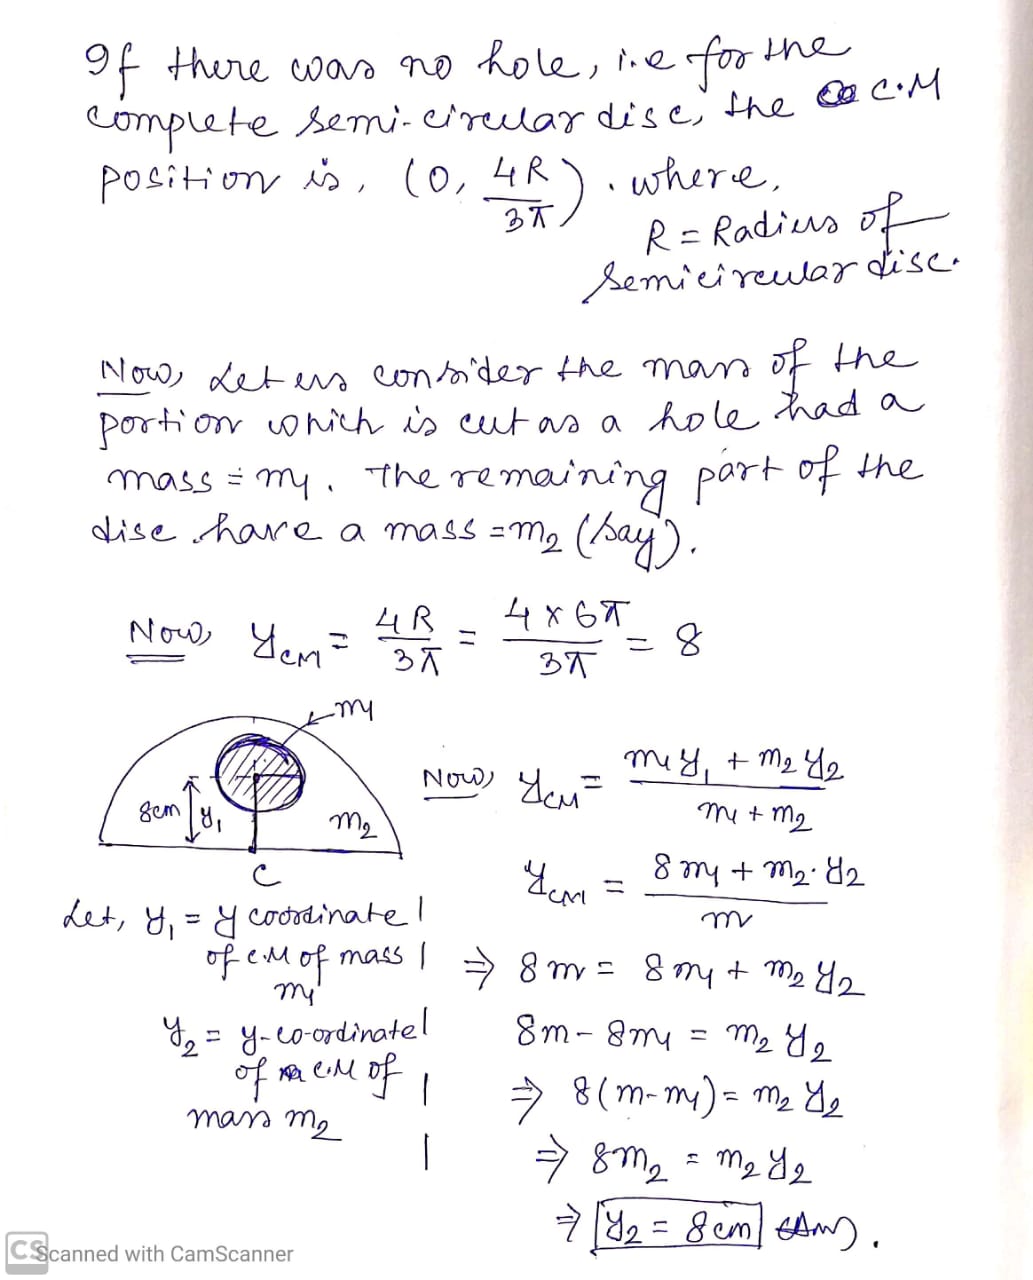 If there was no hole, i.e for the
complete semi-circular disc, the C.M
position is, (0, 4R/3π). where,
R = Radius of
semicircular disc.
Now, Let us consider the mass of the
portion which is cut as a hole had a
mass = m₁. The remaining part of the
disc have a mass = m₂ (say).
Now, yCM = 4R/3π = 4 × 6π/3π = 8
m₁
8cm y₁
m₂
C
Let, y₁ = y coordinate
of C.M of mass
m₁
y₂ = y-co-ordinate
of C.M of
mass m₂
Now, yCM = m₁y₁ + m₂y₂/m₁ + m₂
yCM = 8m₁ + m₂.y₂/m
⇒ 8m = 8m₁ + m₂y₂
8m - 8m₁ = m₂y₂
⇒ 8(m-m₁) = m₂y₂
⇒ 8m₂ = m₂y₂
⇒ y₂ = 8cm (Ans).
CS Scanned with CamScanner